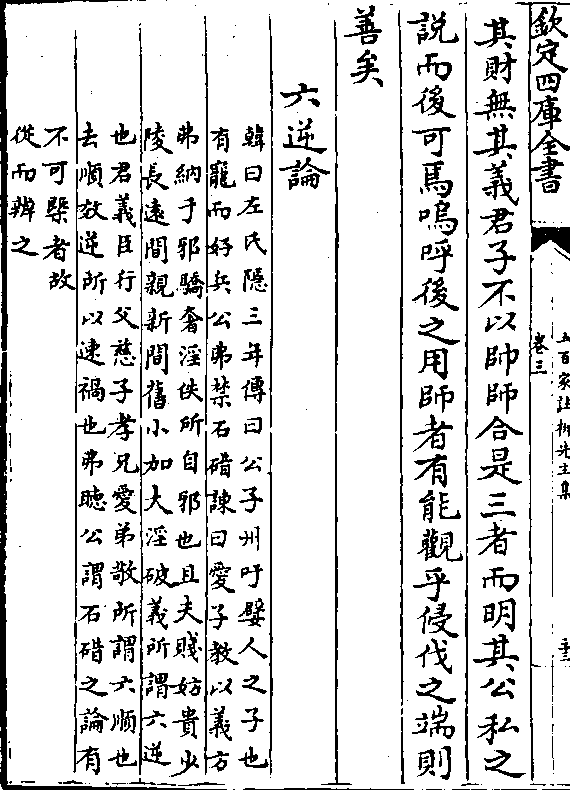 欽定四庫全書
五百家註柳先生集
卷三
其財無其義君子不以帥師合是三者而明其公私之
説而後可焉嗚呼後之用師者有能觀乎侵伐之端則
善矣
六逆論
韓曰左氏隠三年傳曰公子州吁嬖人之子也
有寵而好兵公弗禁石碏諫曰愛子教以義方
弗納于邪驕奢淫佚所自邪也且夫賤妨貴少
陵長遠間親新間舊小加大淫破義所謂六逆
也君義臣行父慈子孝兄愛弟敬所謂六順也
去順效逆所以速禍也弗聴公謂石碏之論有
不可槩者故
從而辨之